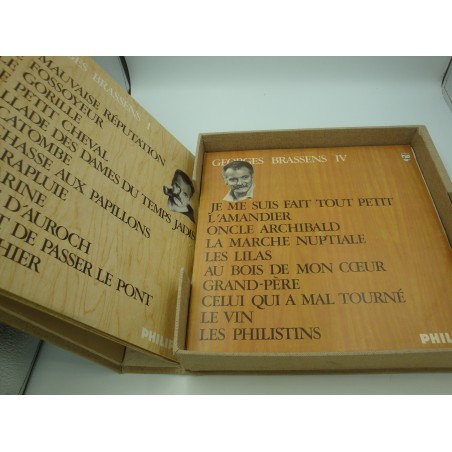 GEORGES BRASSENS I
MAUVAISE RÉPUTATION
FOSSOYEUR
GORILLE
PETIT CHEVAL
LADE DES DAMES DU TEMPS JADIS
CATOMBE
HASSE AUX PAPILLONS
RAPLUIE
RINE
D'AUROCH
T DE PASSER LE PONT
HIER
PHILIP
GEORGES BRASSENS IV
JE ME SUIS FAIT TOUT PETIT
L'AMANDIER
ONCLE ARCHIBALD
LA MARCHE NUPTIALE
LES LILAS
AU BOIS DE MON CŒUR
GRAND-PÈRE
CELUI QUI A MAL TOURNÉ
LE VIN
LES PHILISTINS
PHILI